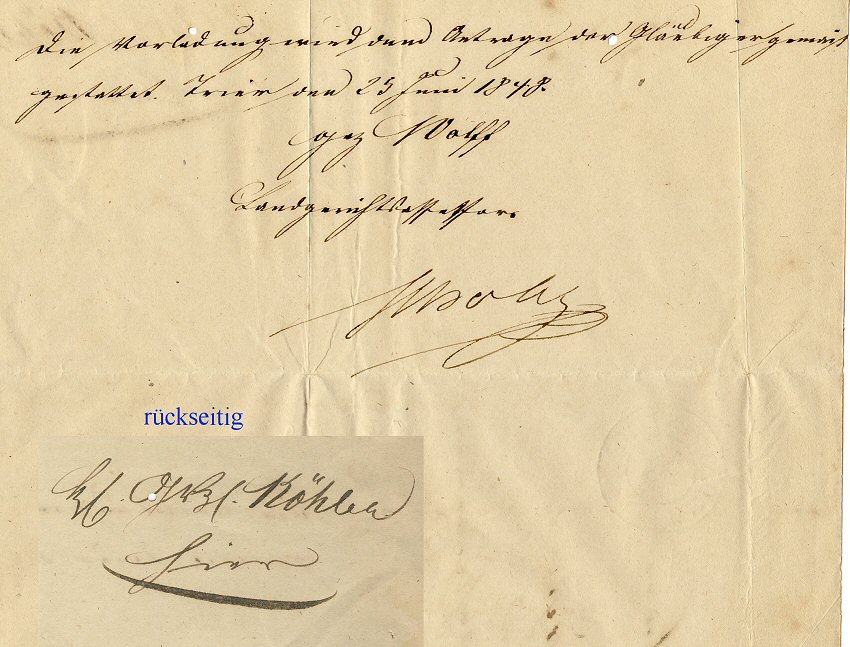 Die Vorladung wird dem Antrage der Gläubiger gemäß
gestattet. Trier den 25 Juni 1848.
gez Wolff
Landgerichtsassessor.
rückseitig
Köhler
hier